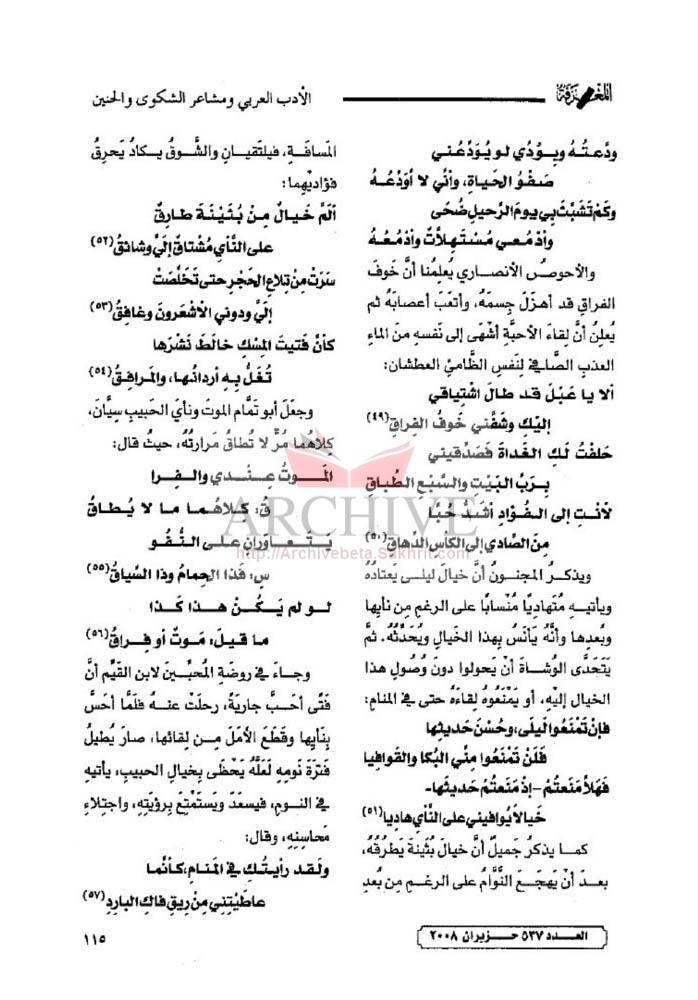 المعرفة
الأدب العربي ومشاعر الشكوى والحنين
ودّعتُهُ وبِوُدّي لو يُوَدّعُني
صَفْوُ الحَياةِ، وأنّي لا أوَدّعُهُ
وكَمْ تَشَبَّثَ بي يومَ الرّحيلِ ضُحًى
وأدْمُعي مُسْتَهِلاّتٌ وأدْمُعُهُ
والأحوصُ الأنصاري يُعلِمُنا أنَّ خَوفَ
الفراقِ قد أهزَلَ جِسمَهُ، وأتعَبَ أعصابَهُ ثم
يُعلنُ أنَّ لقاءَ الأحبَّةِ أشْهَى إلى نفسهِ منَ الماءِ
العذبِ الصَّافي لنَفسِ الظَّامئِ العطشان:
ألا يا عَبْلَ قد طالَ اشْتِياقي
إليْكِ وشَفَّني خَوفُ الفِراقِ(٤٩)
حَلَفتُ لَكِ الغَداةَ فَصَدّقيني
بِرَبِّ البَيْتِ والسَّبْعِ الطِّباقِ
لأنتِ إلى الفُؤادِ أشَدُّ حُبًّا
مِنَ الصّادي إلى الكأسِ الدّهاقِ(٥٠)
ويذكرُ المجنونُ أنَّ خيالَ ليلى يَعتادُهُ
ويأتيهِ مُتهادِيًا مُنسابًا على الرغمِ من نأيِها
وبُعدِها وأنَّهُ يَأنَسُ بهذا الخيالِ ويُحَدِّثُهُ. ثمَّ
يَتَحَدَّى الوُشاةَ أنْ يَحولوا دونَ وُصولِ هذا
الخيالِ إليْهِ، أو يَمْنَعُوهُ لِقاءَهُ حتى في المنامِ:
فإنْ تَمْنَعُوا لَيلَى، وحُسْنَ حَديثِها
فَلَنْ تَمْنَعُوا مِنّي البُكا والقَوافِيا
فَهَلاّ مَنَعتُمْ - إذ مَنَعتُمْ حَديثَها-
خَيالاً يُوافيني على النَّأيِ هادِيا(٥١)
كما يذكرُ جَميلٌ أنَّ خيالَ بُثينةَ يَطرُقُهُ،
بعدَ أنْ يَهجَعَ النُّوَّامُ على الرغمِ مِن بُعدِ
المَسافَةِ، فيلتَقيانِ والشَّوقُ يكادُ يَحرِقُ
فؤاديْهِما:
ألَمَّ خَيالٌ مِنْ بُثَيْنَةَ طارِقُ
على النَّأيِ مُشْتاقٌ إليَّ وشائِقُ(٥٢)
سَرَتْ مِنْ تِلاعِ الحَجْرِ حتى تَخَلَّصَتْ
إليَّ ودوني الأشْعَرونَ وغافِقُ(٥٣)
كأنَّ فَتيتَ المِسْكِ خالَطَ نَشْرَها
تُغَلُّ بهِ أرْدانُها، والمَرافِقُ(٥٤)
وجعَلَ أبو تَمَّام الموتَ ونأيَ الحَبيبِ سِيَّانَ،
كِلاهما مُرٌّ لا تُطاقُ مَرارَتُهُ، حيثُ قال:
المَوتُ عِنْدي والفِرا
قُ، كِلاهُما ما لا يُطاقُ
يَتَعاوَرانِ على النُّفُو
سِ، فَذا الحِمامُ وذا السِّياقُ(٥٥)
لو لم يَكُنْ هذا كَذا
ما قيلَ: مَوتٌ أو فِراقُ(٥٦)
وجاءَ في روضةِ المُحبِّينَ لابن القيِّمِ أنَّ
فَتًى أحَبَّ جاريَةً، رحلَتْ عنهُ فلَمَّا أحَسَّ
بنَأيِها وقطَعَ الأمَلَ مِن لِقائها، صارَ يُطيلُ
فَترَةَ نَومِه لَعلَّهُ يَحْظَى بخيالِ الحبيبِ، يأتيهِ
في النومِ، فيسعَدُ ويَستَمْتِعُ برؤيَتِهِ، واجتِلاءِ
مَحاسِنِهِ، وقال:
ولَقد رأيتُكِ في المَنامِ، كأنَّما
عاطَيْتِني مِنْ ريقِ فاكِ البارِدِ(٥٧)
ARCHIVE
http://Archivebeta.Sakhrit.com
العدد ٥٣٧ حزيران ٢٠٠٨
١١٥